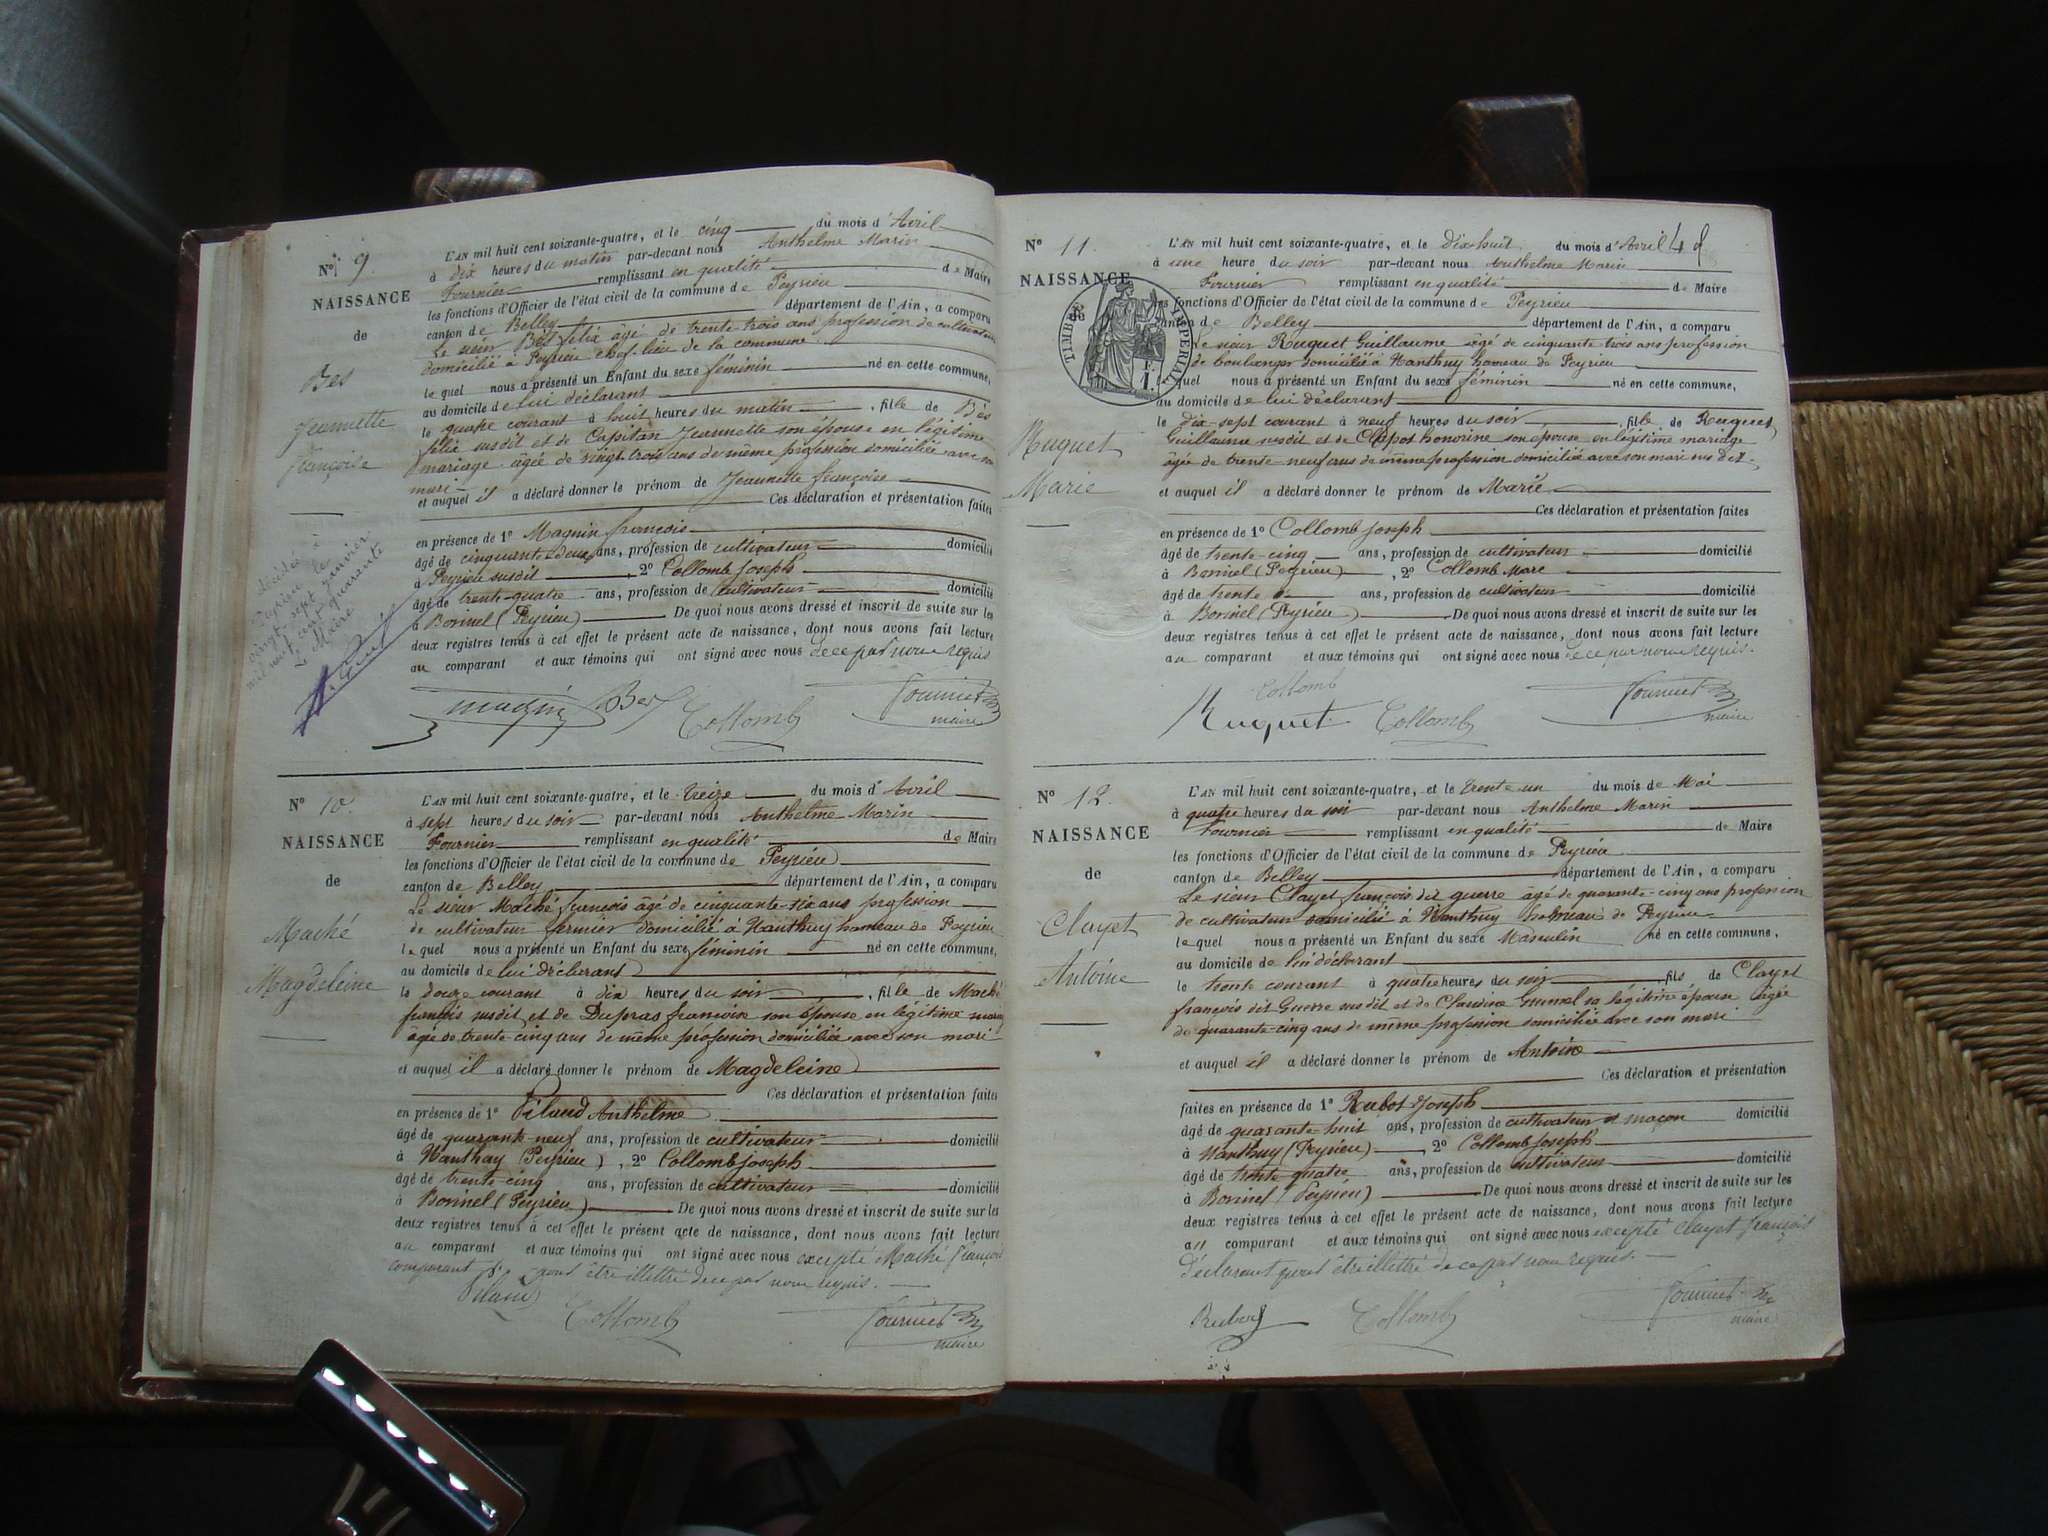 N° 9.
NAISSANCE
de
Bes
Jeannette
françoise
décédée à
Peyrieu le
vingt-sept janvier
mil neuf cent quarante
Le Maire
L'AN mil huit cent soixante-quatre, et le cinq du mois d'Avril
à dix heures du matin par-devant nous Anthelme Marin
Fournier remplissant en qualité de Maire
les fonctions d'Officier de l'état civil de la commune de Peyrieu
canton de Belley département de l'Ain, a comparu
Le sieur Bès félix âgé de trente-trois ans profession de cultivateur
domicilié à Peyrieu chef-lieu de la commune
le quel nous a présenté un Enfant du sexe féminin né en cette commune,
au domicile de lui déclarant
le quatre courant à huit heures du matin, fille de Bès
félix susdit et de Capitan Jeannette son épouse en légitime
mariage âgée de vingt-trois ans de même profession domiciliée avec son
mari
et auquel il a déclaré donner le prénom de Jeannette françoise
Ces déclaration et présentation faites
en présence de 1° Magnin françois
âgé de cinquante-deux ans, profession de cultivateur domicilié
à Peyrieu susdit, 2° Collomb Joseph
âgé de trente-quatre ans, profession de cultivateur domicilié
à Borinel (Peyrieu) De quoi nous avons dressé et inscrit de suite sur les
deux registres tenus à cet effet le présent acte de naissance, dont nous avons fait lecture
au comparant et aux témoins qui ont signé avec nous de ce par nous requis
Magnin Bes Collomb Fournier
maire
N° 10.
NAISSANCE
de
Maché
Magdeleine
L'AN mil huit cent soixante-quatre, et le treize du mois d'Avril
à sept heures du soir par-devant nous Anthelme Marin
Fournier remplissant en qualité de Maire
les fonctions d'Officier de l'état civil de la commune de Peyrieu
canton de Belley département de l'Ain, a comparu
Le sieur Maché françois âgé de cinquante-six ans profession
de cultivateur fermier domicilié à Nanthuy hameau de Peyrieu
le quel nous a présenté un Enfant du sexe féminin né en cette commune,
au domicile de lui déclarant
le douze courant à dix heures du soir, fille de Maché
françois susdit et de Dupras françoise son épouse en légitime mariage
âgée de trente-cinq ans de même profession domiciliée avec son mari
et auquel il a déclaré donner le prénom de Magdeleine
Ces déclaration et présentation faites
en présence de 1° Pilaud Anthelme
âgé de quarante-neuf ans, profession de cultivateur domicilié
à Nanthuy (Peyrieu), 2° Collomb Joseph
âgé de trente-cinq ans, profession de cultivateur domicilié
à Borinel (Peyrieu) De quoi nous avons dressé et inscrit de suite sur les
deux registres tenus à cet effet le présent acte de naissance, dont nous avons fait lecture
au comparant et aux témoins qui ont signé avec nous excepté Maché françois
comparant pour être illettré de ce par nous requis.
Pilaud
Collomb Fournier
maire
48
N° 11.
NAISSANCE
TIMBRE IMPERIAL
F.
1.
Ruquet
Marie
L'AN mil huit cent soixante-quatre, et le dix-huit du mois d'Avril
à une heure du soir par-devant nous Anthelme Marin
Fournier remplissant en qualité de Maire
les fonctions d'Officier de l'état civil de la commune de Peyrieu
canton de Belley département de l'Ain, a comparu
Le sieur Ruquet Guillaume âgé de cinquante-trois ans profession
de boulanger domicilié à Nanthuy hameau de Peyrieu
le quel nous a présenté un Enfant du sexe féminin né en cette commune,
au domicile de lui déclarant
le dix-sept courant à neuf heures du soir, fille de Ruquet
Guillaume susdit et de honorine son épouse en légitime mariage
âgée de trente-neuf ans de même profession domiciliée avec son mari susdit
et auquel il a déclaré donner le prénom de Marie
Ces déclaration et présentation faites
en présence de 1° Collomb Joseph
âgé de trente-cinq ans, profession de cultivateur domicilié
à Borinel (Peyrieu), 2° Collomb Marc
âgé de trente ans, profession de cultivateur domicilié
à Borinel (Peyrieu) De quoi nous avons dressé et inscrit de suite sur les
deux registres tenus à cet effet le présent acte de naissance, dont nous avons fait lecture
au comparant et aux témoins qui ont signé avec nous de ce par nous requis.
Collomb
Ruquet Collomb Fournier
maire
N° 12.
NAISSANCE
de
Clayet
Antoine
L'AN mil huit cent soixante-quatre, et le trente un du mois de Mai
à quatre heures du soir par-devant nous Anthelme Marin
Fournier remplissant en qualité de Maire
les fonctions d'Officier de l'état civil de la commune de Peyrieu
canton de Belley département de l'Ain, a comparu
Le sieur Clayet françois dit guerre âgé de quarante-cinq ans profession
de cultivateur domicilié à Nanthuy hameau de Peyrieu
le quel nous a présenté un Enfant du sexe Masculin né en cette commune,
au domicile de lui déclarant
le trente courant à quatre heures du soir fils de Clayet
françois dit Guerre susdit et de Claudine sa légitime épouse âgée
de quarante-cinq ans de même profession domiciliée avec son mari
et auquel il a déclaré donner le prénom de Antoine
Ces déclaration et présentation
faites en présence de 1° Rubod Joseph
âgé de quarante-huit ans, profession de cultivateur et maçon domicilié
à Nanthuy (Peyrieu), 2° Collomb Joseph
âgé de trente-quatre ans, profession de cultivateur domicilié
à Borinel (Peyrieu) De quoi nous avons dressé et inscrit de suite sur les
deux registres tenus à cet effet le présent acte de naissance, dont nous avons fait lecture
au comparant et aux témoins qui ont signé avec nous excepté Clayet françois
déclarant pour être illettré de ce par nous requis.
Rubod Collomb Fournier
maire